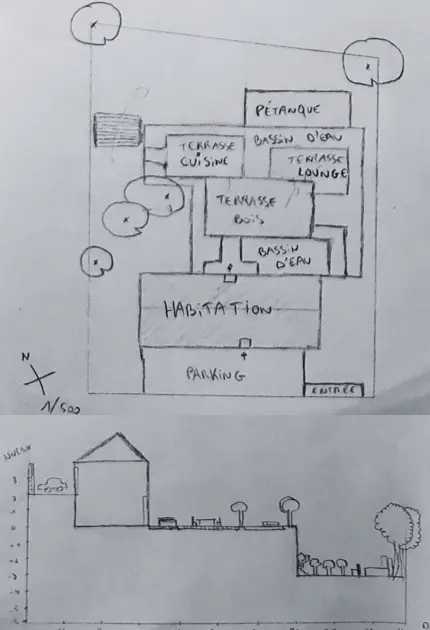 PÉTANQUE
BASSIN D'EAU
TERRASSE
CUISINE
TERRASSE
LOUNGE
TERRASSE
BOIS
BASSIN
D'EAU
HABITATION
PARKING
ENTRÉE
N
1/500